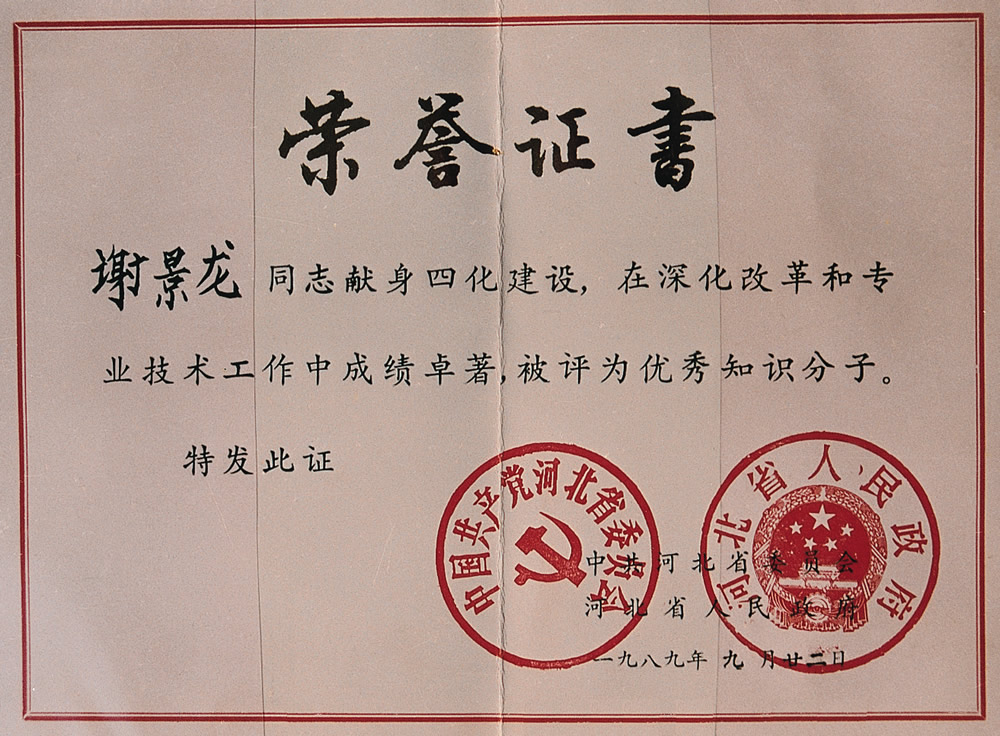 荣誉证书
谢景龙 同志献身四化建设, 在深化改革和专
业技术工作中成绩卓著,被评为优秀知识分子。
特发此证
中国共产党河北省委员会
河北省人民政府
中共河北省委员会
河北省人民政府
一九八九年九月廿二日